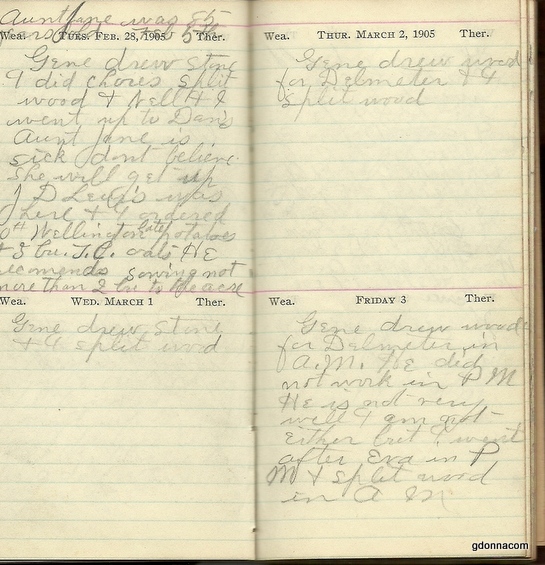 Aunt Jane was 85
years old Feb 5th
Wea. TUES. FEB. 28, 1905 Ther.
Gene drew stone
& I did chores split
wood & Nell & I
went up to Dans
Aunt Jane is
sick dont believe
she will get up
J D Lewis was
here & I ordered
Wellington late potatoes
+ 3 bu. J.C. oats HE
recomends sowing not
more than 2 bu to the acre
Wea. WED. MARCH 1 Ther.
Gene drew stone
& I split wood
Wea. THUR. MARCH 2, 1905 Ther.
Gene drew wood
for Delmeter & I
split wood
Wea. FRIDAY 3 Ther.
Gene drew wood
for Delmeter in
A.M. He did
not work in P M
He is not very
well I am not
either but I went
after Eva in P
M & split wood
in A M
gdonnacom